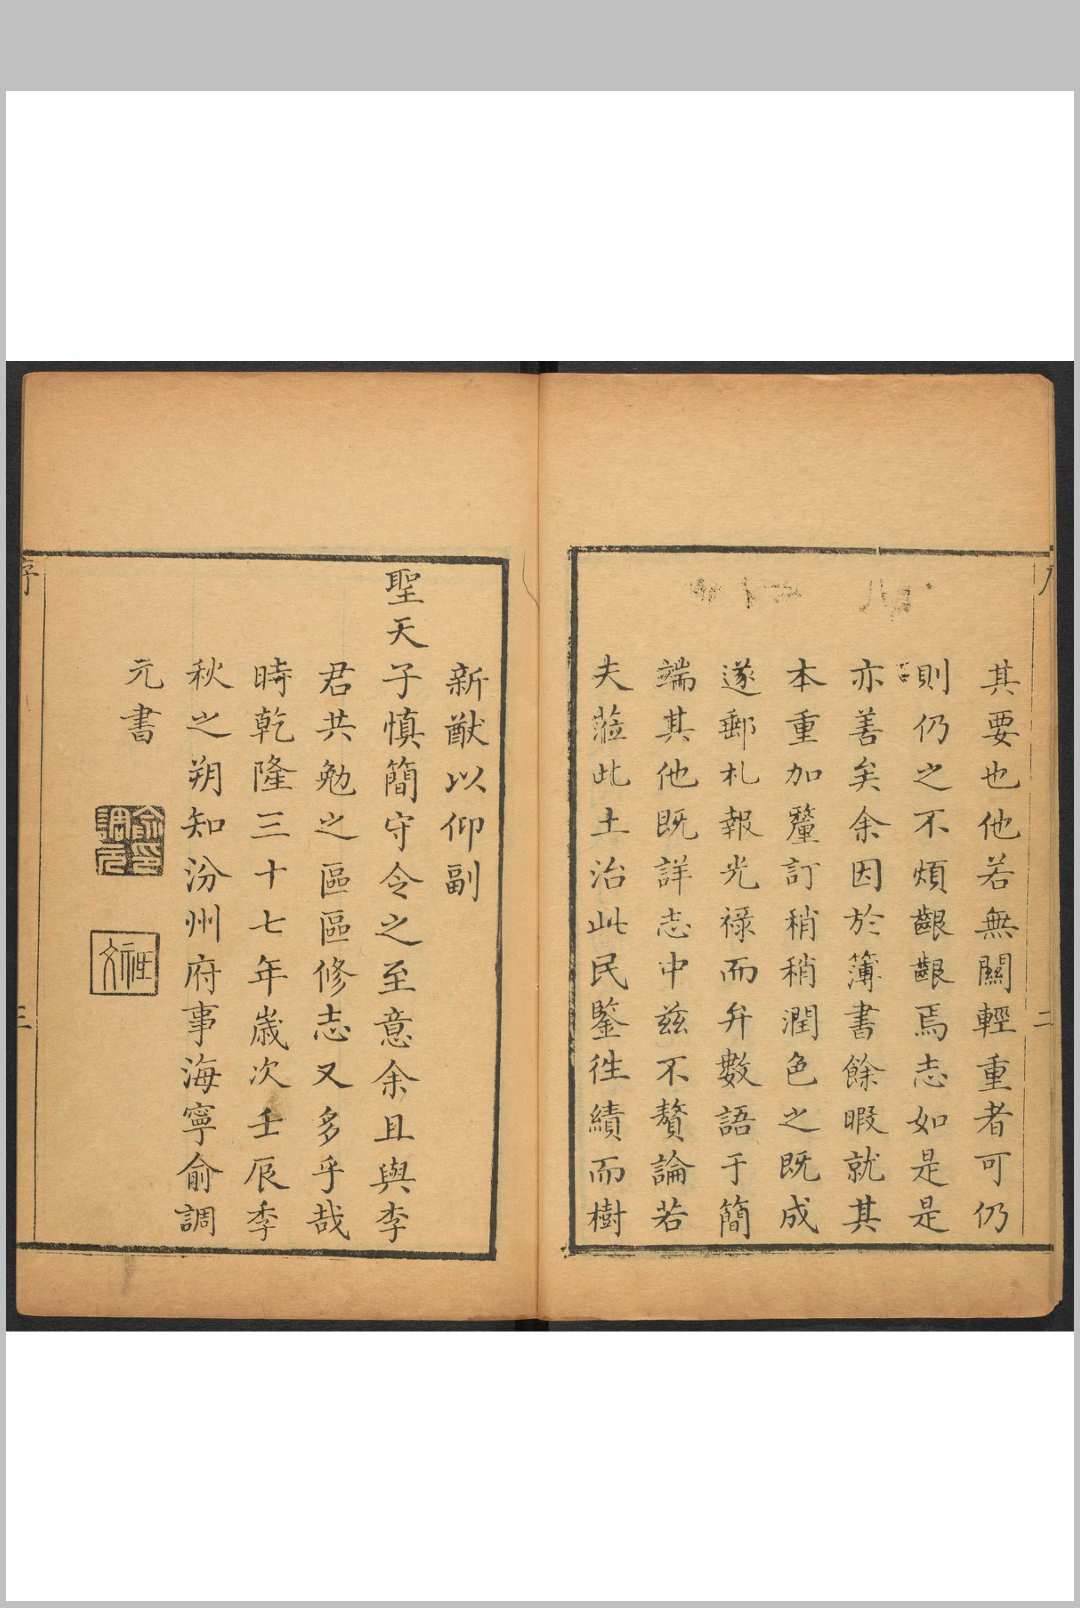 二
其要也他若無關輕重者可仍
則仍之不煩齦齦焉志如是是
亦善矣余因於簿書餘暇就其
本重加釐訂稍稍潤色之既成
遂郵札報光祿而弁數語于簡
端其他既詳志中茲不贅論若
夫蒞此土治此民鑒往績而樹
新猷以仰副
聖天子慎簡守令之至意余且與李
君共勉之區區修志又多乎哉
時乾隆三十七年歲次壬辰季
秋之朔知汾州府事海寧俞調
元書
俞調元印
序
三